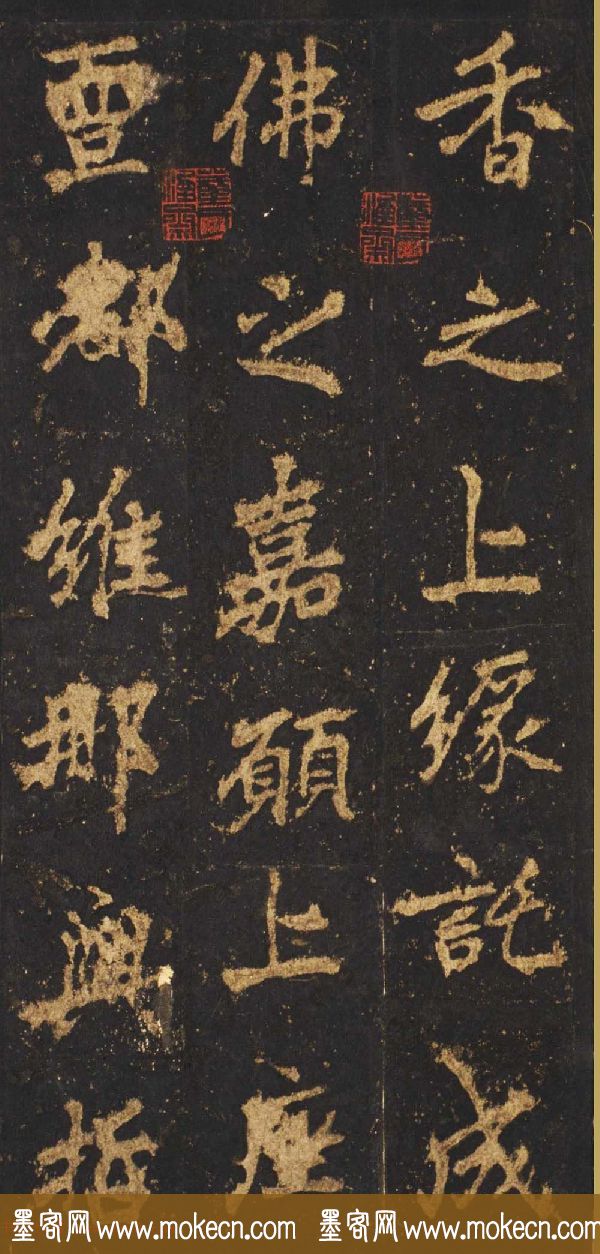 香之上緣託成
佛之嘉願上座
亶都維那興哲
墨客网 www.mokecn.com 墨客网 www.mokecn.com